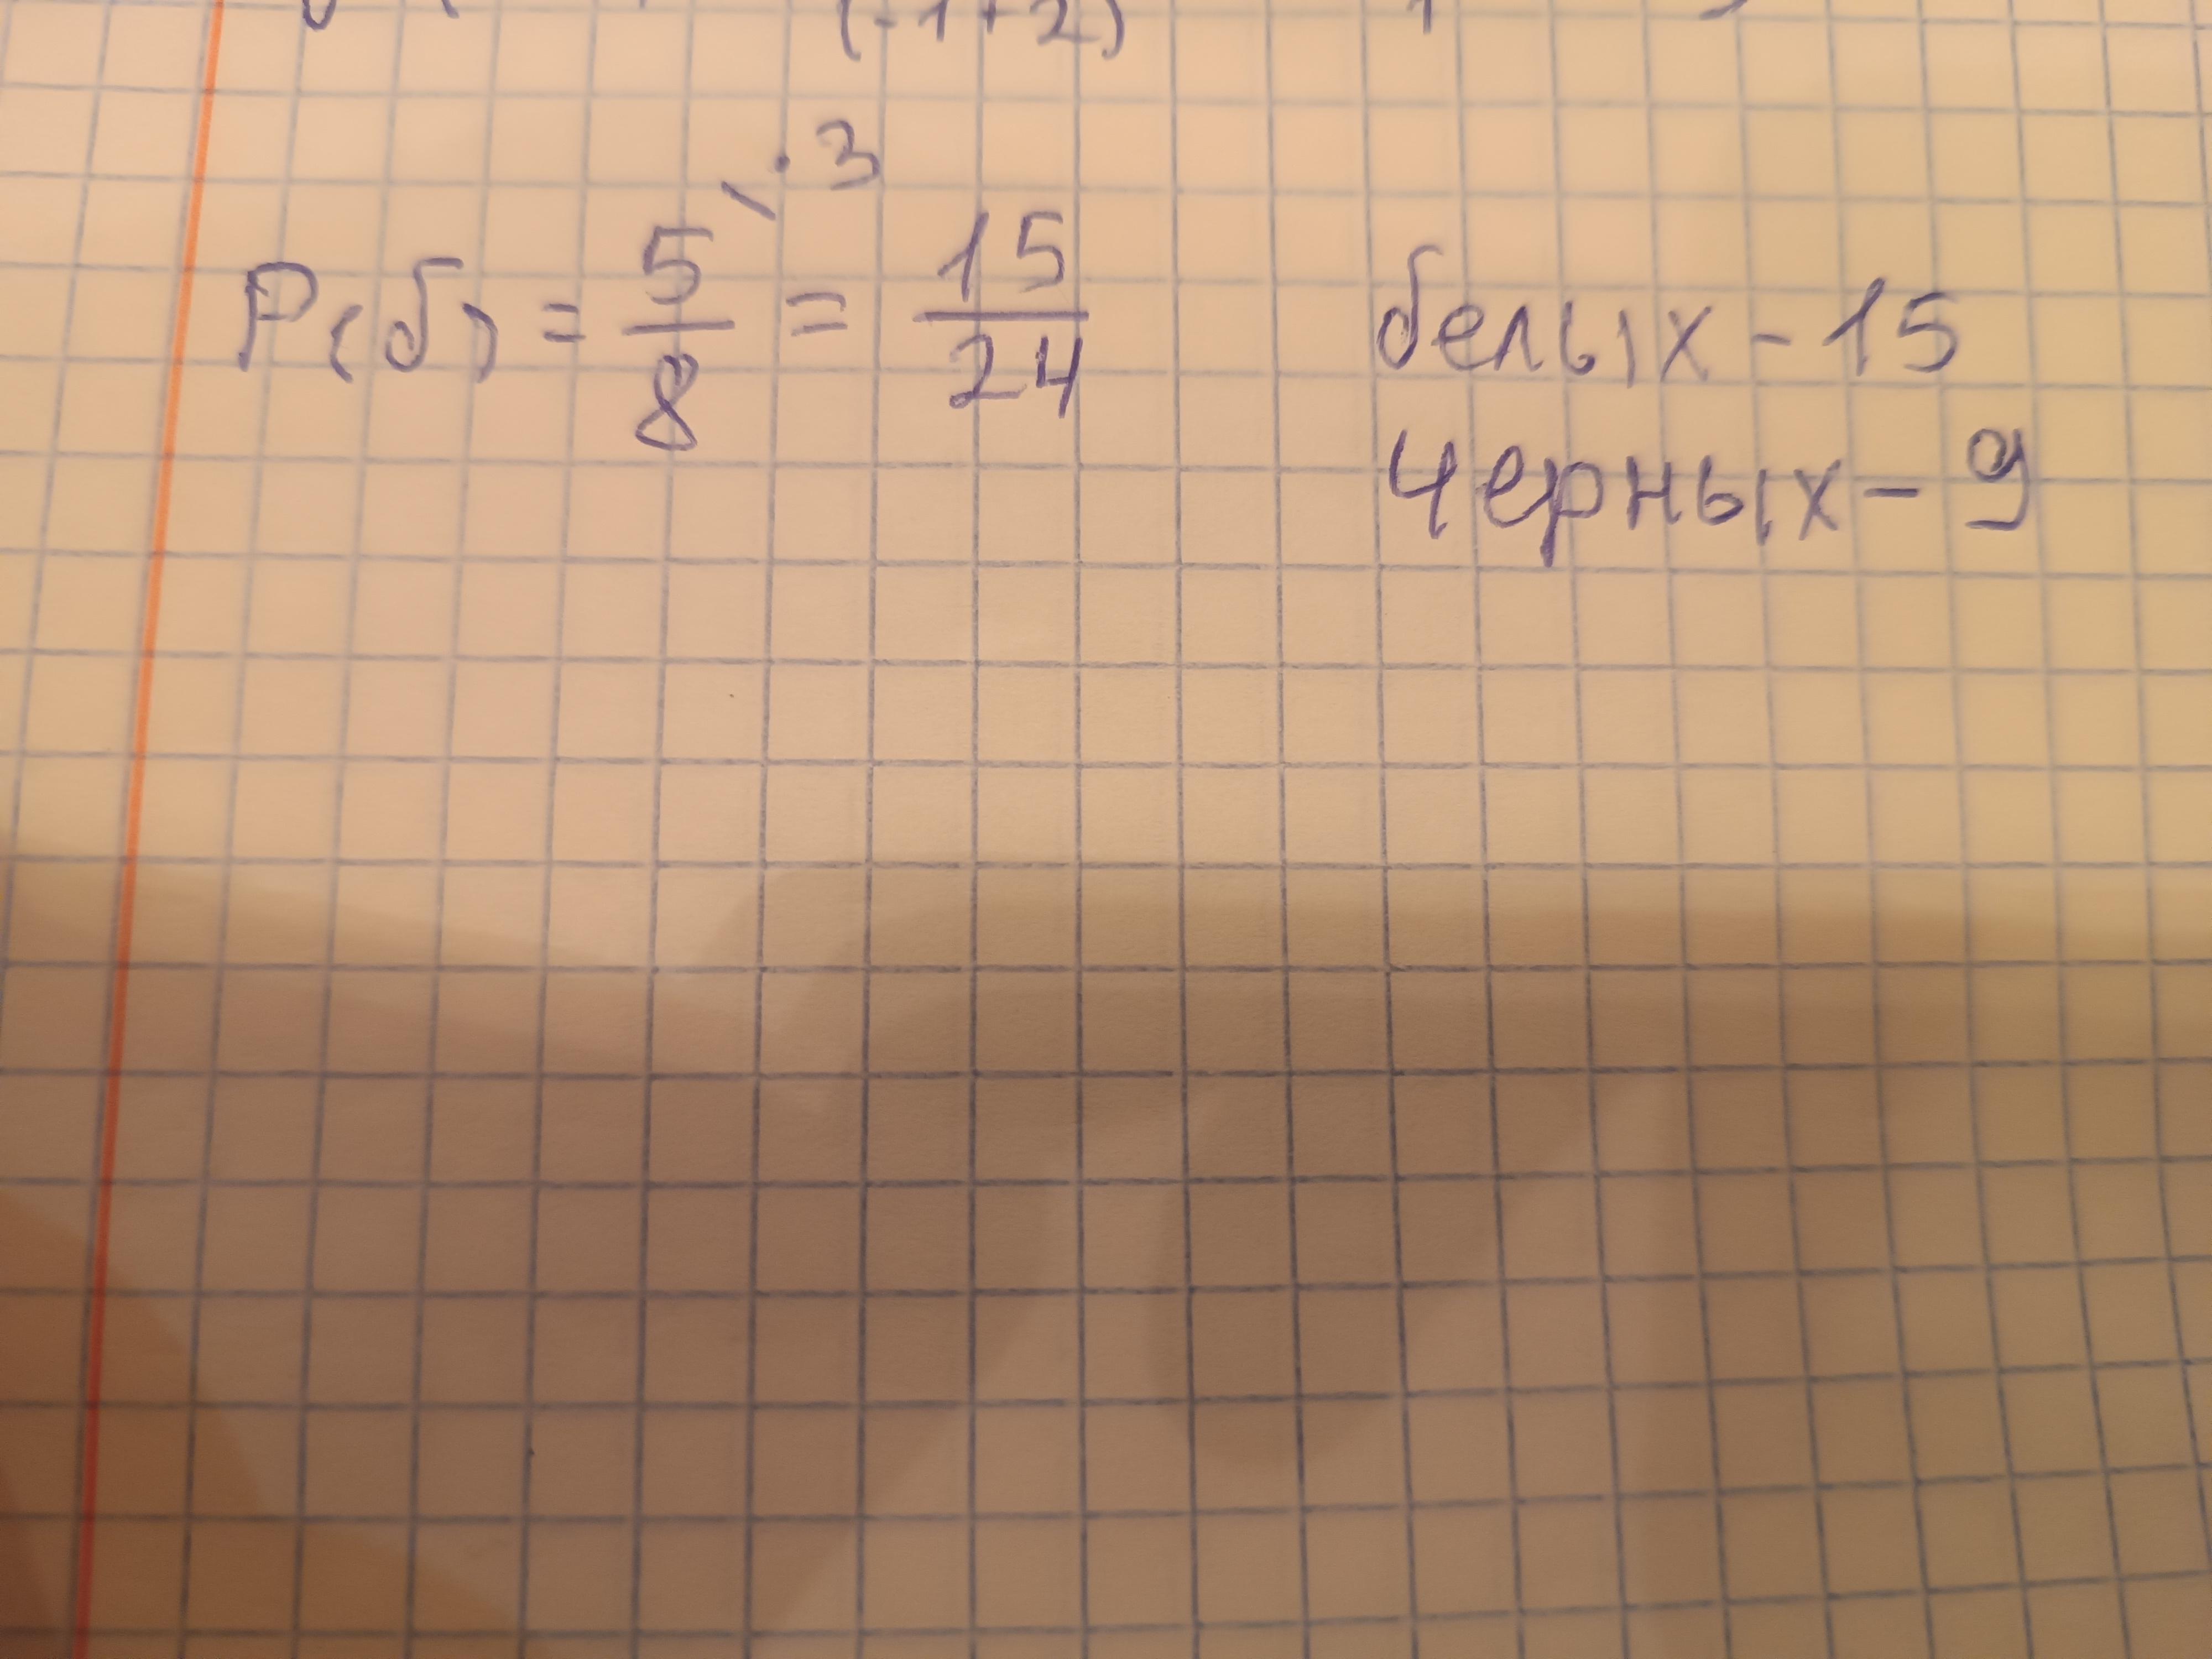 (-1+2)
P(б) = 5/8 \ ·3 = 15/24
белых - 15
черных - 9